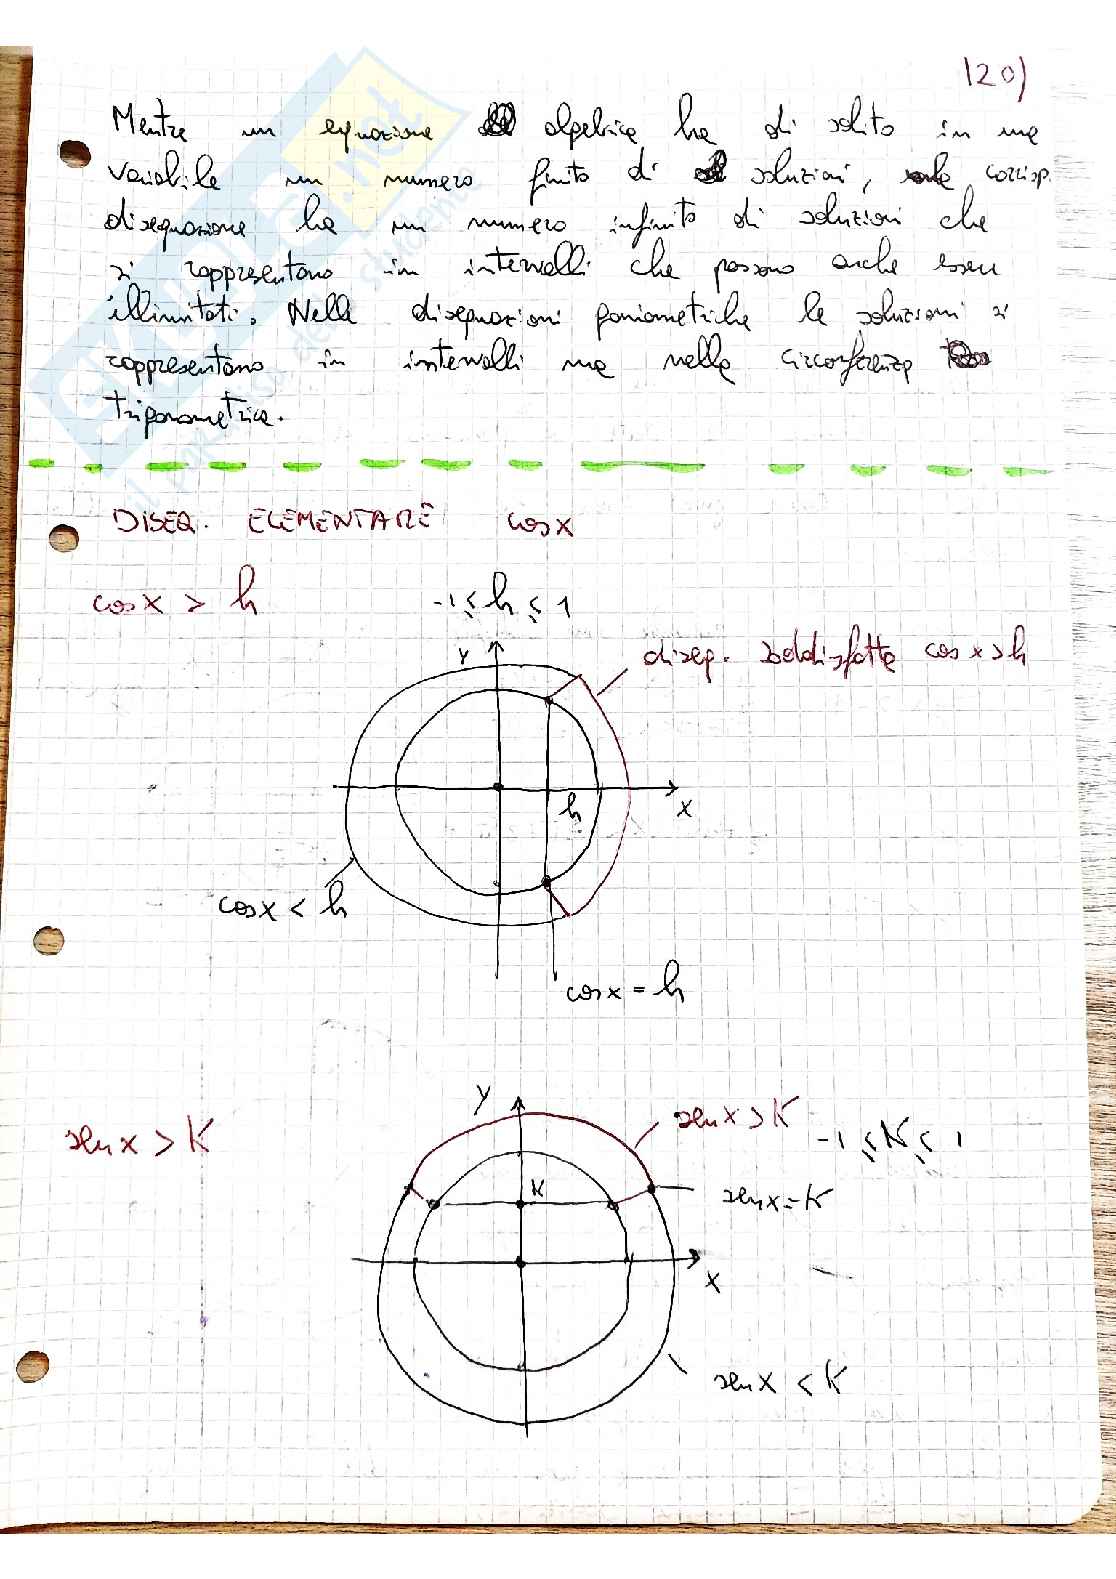 120)
Mentre un equazione algebrica ha di solito in una
variabile un numero finito di soluzioni, corrisp.
disequazione ha un numero infinito di soluzioni che
si rappresentano in intervalli che possono anche essere
illimitati. Nelle disequazioni goniometriche le soluzioni si
rappresentano in intervalli ma nella circonferenza
trigonometrica.
DISEQ. ELEMENTARE cosx
cosx > h -1 ≤ h ≤ 1
y
diseq. soddisfatta cosx>h
h
x
cosx < h
cosx = h
y
senx > K
senx>K
-1 ≤ K ≤ 1
K
senx=K
x
senx < K